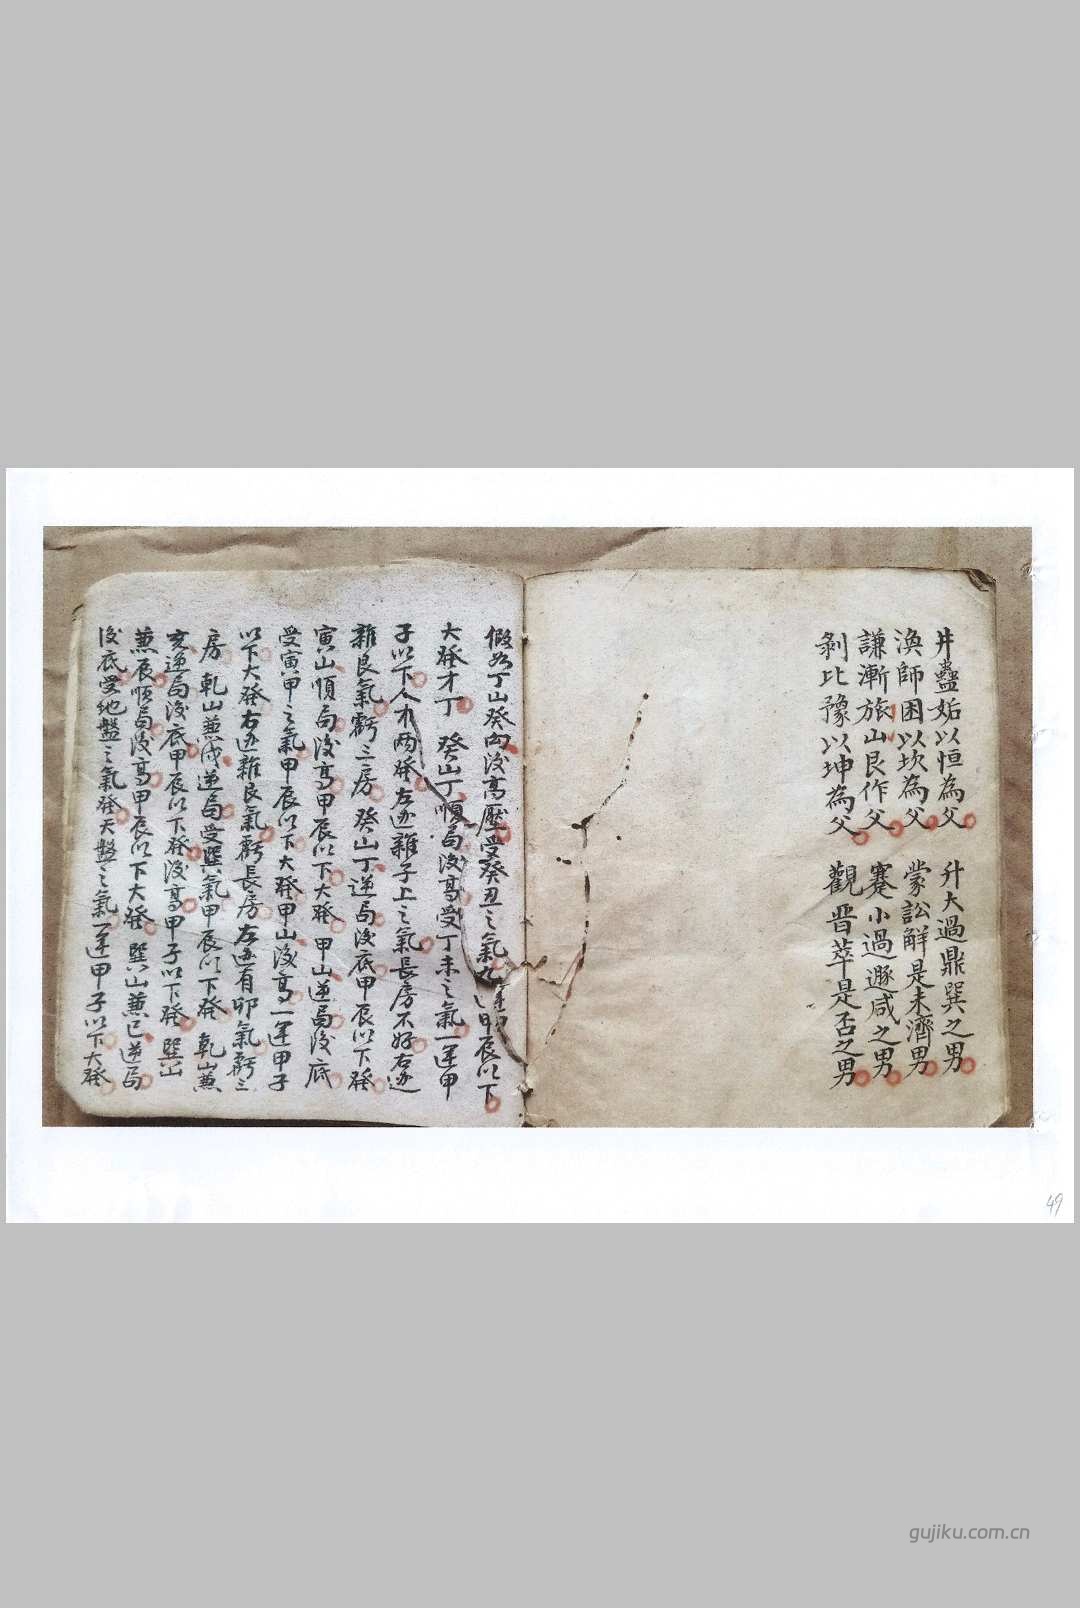 井蠱姤以恒為父 升大過鼎巽之男
渙師困以坎為父 蒙訟解是未濟男
謙漸旅山艮作父 蹇小過遯咸之男
剝比豫以坤為父 觀晋萃是否之男
假如丁山癸向後高壓受癸丑之氣九運甲辰以下
大發才丁 癸山丁順局後高受丁未之氣一運甲
子以下人才兩發左邊雜子上之氣長房不好右邊
雜艮氣虧三房 癸山丁逆局後底甲辰以下發
寅山順局後高甲辰以下大發 甲山逆局後底
受寅甲之氣甲辰以下大發甲山後高一運甲子
以下大發右邊雜艮氣虧長房左邊有卯氣虧三
房 乾山兼戌逆局受巽氣甲辰以下發 乾山兼
亥逆局後底甲辰以下發後高甲子以下發 巽山
兼辰順局後高甲辰以下大發 巽山兼巳逆局
後底受地盤之氣發天盤之氣一運甲子以下大發
49
gujiku.com.cn